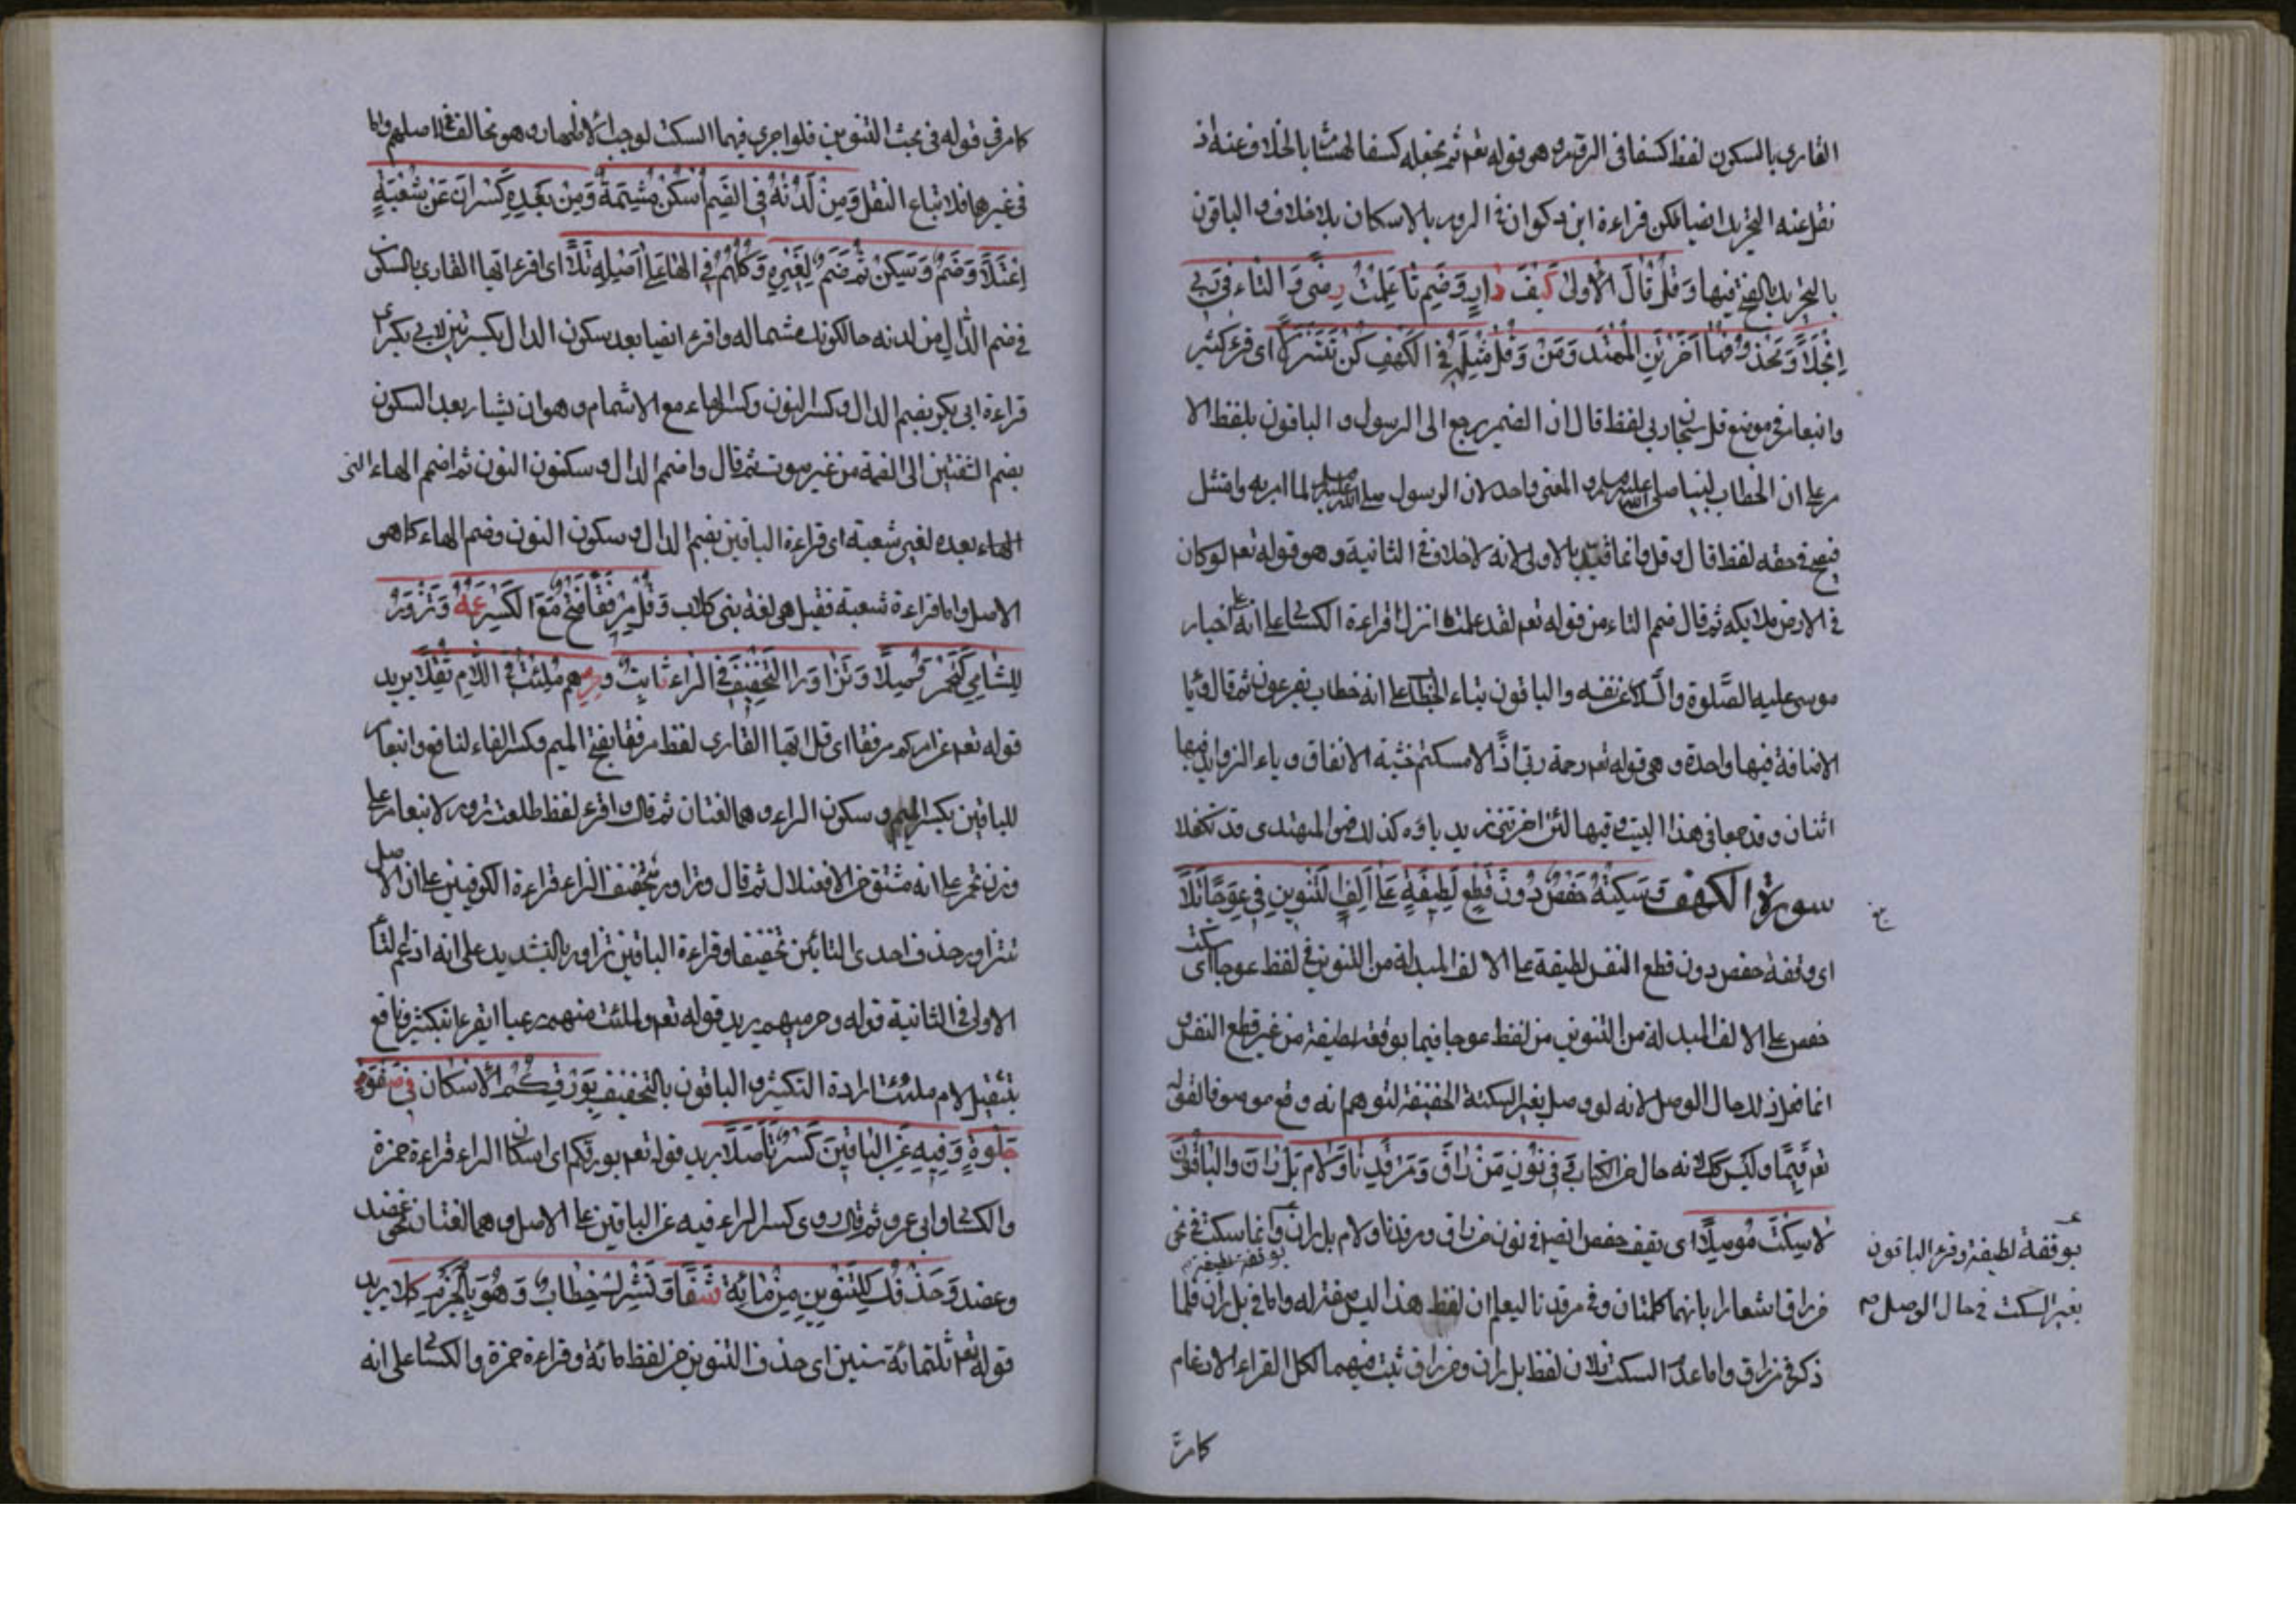 القارى بالسكون لفظ كسفا فى الروم وهو قوله تعم ثم يجعله كسفا لهشام بالخلاف وعنه اذ
نقل عنه التحريك ايضا لكن قراءة ابن ذكوان فى الروم بالاسكان بلا خلاف والباقون
بالتحريك بالفتح فيها وَقُلْ قَالَ الْأُولَى كَيْفَ دَارٍ وَضَمَّ تَا عَلِمْتُ رِضًى وَالْيَاءُ فِى رَبِّى
اِنْجَلَا وَخُذْ وَمَنْ وَقُلْ فِى الْكَهْفِ اى قرء كثير
وابنعامر فى موضع قل سبحان ربى لفظ قال ان الضمير يرجع الى الرسول والباقون بلفظ الا
مر على ان الخطاب لنبينا صلى الله عليه وسلم والمعنى واحد لان الرسول صلى الله عليه وسلم لما امر به وامتثل
فيصح فى حقه لفظ قال وقل وانما قيد بالاولى لانه لا خلاف فى الثانية وهو قوله تعم لو كان
فى الارض ملايكة ثم قال ضم التاء من قوله تعم لقد علمت ما انزل قراءة الكسائى على انه اخبار
موسى عليه الصلوة والسلام عن نفسه والباقون بتاء الخطاب على انه خطاب بفرعون ثم قال ويا
الاضافة فيها واحدة وهى قوله تعم رحمة ربى اذًا لامسكتم خشية الانفاق وياء الزوايد فيها
اثنان وقد جمعا فى هذا البيت وفيها لئن اخرتنى يزيد ياؤه كذلك فهو المهتدى قد تكفلا
سورة الكهف وَسَكْتَةُ حَفْصٍ دُونَ قَطْعٍ لَطِيفَةٍ عَلَى اَلِفِ التَّنْوِينِ فِى عِوَجًا بَلَا
اى وقفة حفص دون قطع النفس لطيفة على الالف المبدلة من التنوين فى لفظ عوجا اى سكت
حفص على الالف المبدلة من التنوين من لفظ عوجا قيما بوقفة لطيفة من غير قطع النفس
انما فعل ذلك حال الوصل لانه لو وصل بغير السكتة الخفيفة لتوهم انه وقع موصوفا لقوله
تعم قيما وليس كك لانه حال من الكتاب وَفِى نُونِ مَنْ رَاقٍ وَمَرْقَدِنَا وَلَامِ بَلْ رَانَ وَالْبَاقُونَ
لَا سَكْتَ مُوصَلًا اى يقف حفص ايضا فى نون من راق ومرقدنا ولام بل ران وانما سكت فى
بوقفة لطيفة
من راق اشعارا بانهما كلمتان وفى مرقدنا ليعلم ان لفظ هذا ليس صفة له واما فى بل ران فلما
ذكر فى من راق واما عدم السكت فلان لفظ بل ران ومن راق ثبت فيهما لكل القراء الادغام
كامر
بوقفة لطيفة وقرء الباقون
بغير السكت فى حال الوصل صح
كامر فى قوله فى بحث التنوين فلو اجرى فيهما السكت لوجب الاظهار وهو مخالف لاصلهم واما
فى غيرهما فلاتباع النقل وَمِنْ لَدْنِهِ فِى الضَّمِّ اَسْكِنْ مُشِمَّهُ وَمِنْ بَعْدِهِ كَسْرَانِ عَنْ شُعْبَةٍ
اِعْتَلَا وَضُمَّ وَسَكِّنْ ثُمَّ ضُمَّ لِغَيْرِهِ وَكُلُّهُمُ فِى الْهَا عَلَى اَصْلِهِ تَلَا اى اقرء ايها القارى بالسكون
فى ضم الدال من لدنه حالكونك مشما له واقرء ايضا بعد سكون الدال بكسرتين لابى بكر
قراءة ابى بكر بضم الدال وكسر النون وكسر الهاء مع الاشمام وهو ان يشار بعد السكون
بضم الشفتين الى الضمة من غير صوت ثم قال واضمم الدال وسكون النون ثم اضمم الهاء التى
الهاء بعده لغير شعبة اى قراءة الباقين بضم الدال وسكون النون وضم الهاء كما هى
الاصل واما قراءة شعبة فقيل هى لغة بنى كلاب وَقُلْ مِرْفَقًا فَتْحٌ مَعَ الْكَسْرِ عَمَّهُ وَتَزْوَرُّ
لِلشَّامِى كَتَحْمَرُّ وُصِّلَا وَتَزَّاوَرُ التَّخْفِيفُ فِى الزَّاءِ ثَابِتٌ وَحِرْمِيُّهُمْ مُلِّئْتَ فِى اللَّامِ ثَقَّلَا يريد
قوله تعم من امركم مرفقا اى قل ايها القارى لفظ مرفقا بفتح الميم وكسر الفاء لنافع وابنعامر
للباقين بكسر الميم وسكون الراء وهما لغتان ثم قال واقرء لفظ طلعت تزور لابنعامر على
وزن تحمر على انه مشتق من الافعلال ثم قال وتزاور بتخفيف الزاء قراءة الكوفيين على ان الاصل
تتزاور حذف احدى التائين تخفيفا وقراءة الباقين تزاور بالتشديد على انه ادغم التاء
الاولى فى الثانية قوله وحرميهم يريد قوله تعم ولملئت منهم رعبا اى قرء ابنكثير ونافع
بتثقيل لام ملئت ارادة التكثير والباقون بالتخفيف بِوَرْقِكُمُ الْاِسْكَانُ فِى صَفْوِ
حُلْوِهِ وَفِيهِ عَنِ الْبَاقِينَ كَسْرٌ تَاَصَّلَا يريد قوله تعم بورقكم اى اسكان الراء قراءة حمزة
والكسائى وابى عمرو ثم قال روى كسر الراء فيه عن الباقين على الاصل وهما لغتان نحو عضد
وعضد وَحَذْفُكَ لِلتَّنْوِينِ مِنْ مِائَةٍ شَفَا وَتُشْرِكْ خِطَابٌ وَهْوَ بِالْجَزْمِ كُمِّلَا يريد
قوله تعم ثلثمائة سنين اى حذف التنوين من لفظ مائة وقراءة حمزة والكسائى على انه